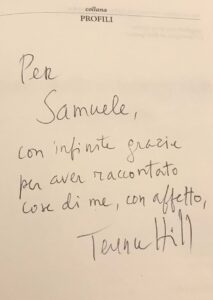 collana
PROFILI
Per
Samuele,
con infinite grazie
per aver raccontato
cose di me, con affetto,
Terence Hill